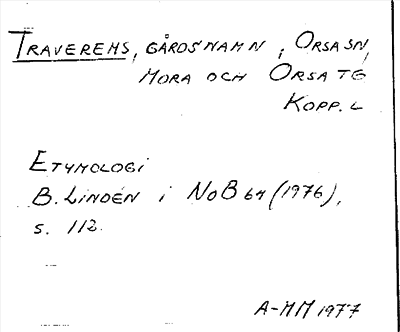 TRAVEREMS, GÅRDSNAMN, ORSA SN,
MORA OCH ORSA TG
KOPP. L
ETYMOLOGI
B. LINDÉN i NoB 64 (1976),
s. 112.
A-MM 1977